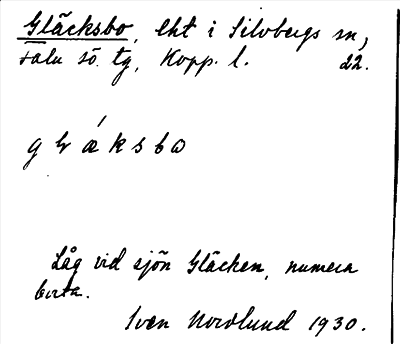 Gläcksbo, lht i Silvbergs sn,
Falu sö. tg, Kopp. l. 22.
g l ǽ k s b ω
Låg vid sjön Gläcken, numera
borta.
Sven Nordlund 1930.